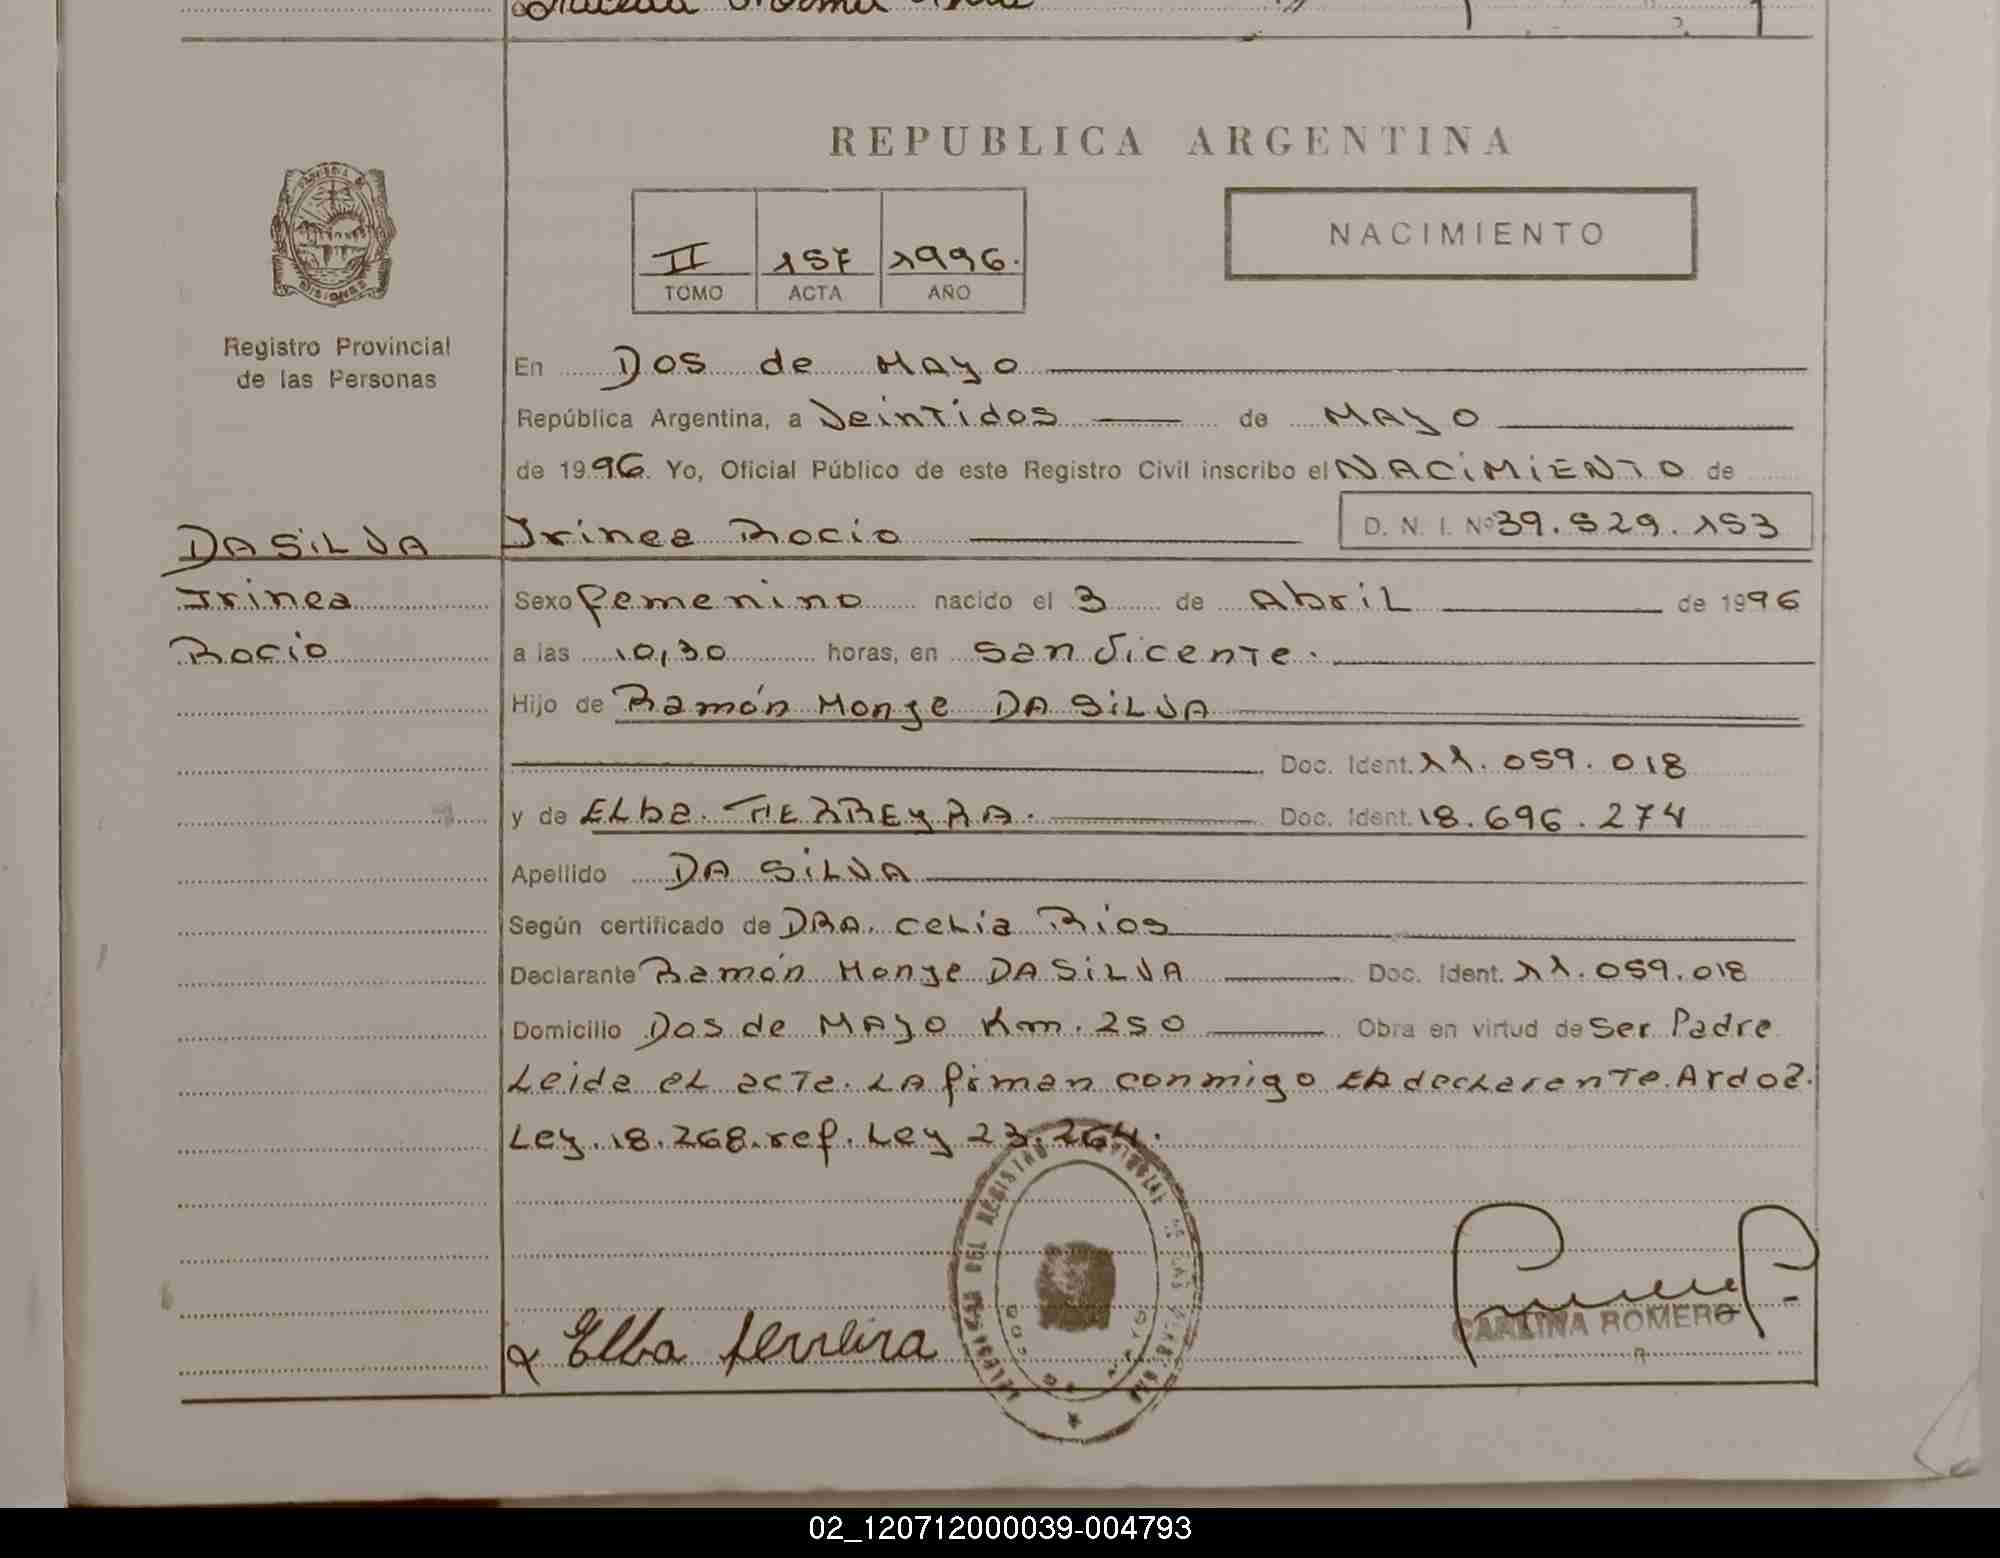 REPUBLICA ARGENTINA
PROVINCIA DE MISIONES
II 157 1996.
TOMO ACTA AÑO
NACIMIENTO
Registro Provincial
de las Personas
En Dos de Mayo
República Argentina, a Veintidos de Mayo
de 1996. Yo, Oficial Público de este Registro Civil inscribo el NACIMIENTO de
DA SILVA Irinea Rocio D. N. I. Nº 39.529.153
Irinea Sexo femenino nacido el 3 de Abril de 1996
Rocio a las 10,30 horas, en San Vicente.
Hijo de Ramón Monge DA SILVA
Doc. Ident. 11.059.018
y de Elba FERREYRA. Doc. Ident. 18.696.274
Apellido DA SILVA
Según certificado de DRA. Celia Rios
Declarante Ramón Monge DA SILVA Doc. Ident. 11.059.018
Domicilio Dos de Mayo Km. 250 Obra en virtud de Ser Padre
Leida el acta. LA firman conmigo declarante.
Ley. 18.268. ref. Ley 23.264.
DEL REGISTRO PROVINCIAL DE LAS PERSONAS
DOS DE MAYO
Elba ferreira
CARLINA ROMERO
02_120712000039-004793